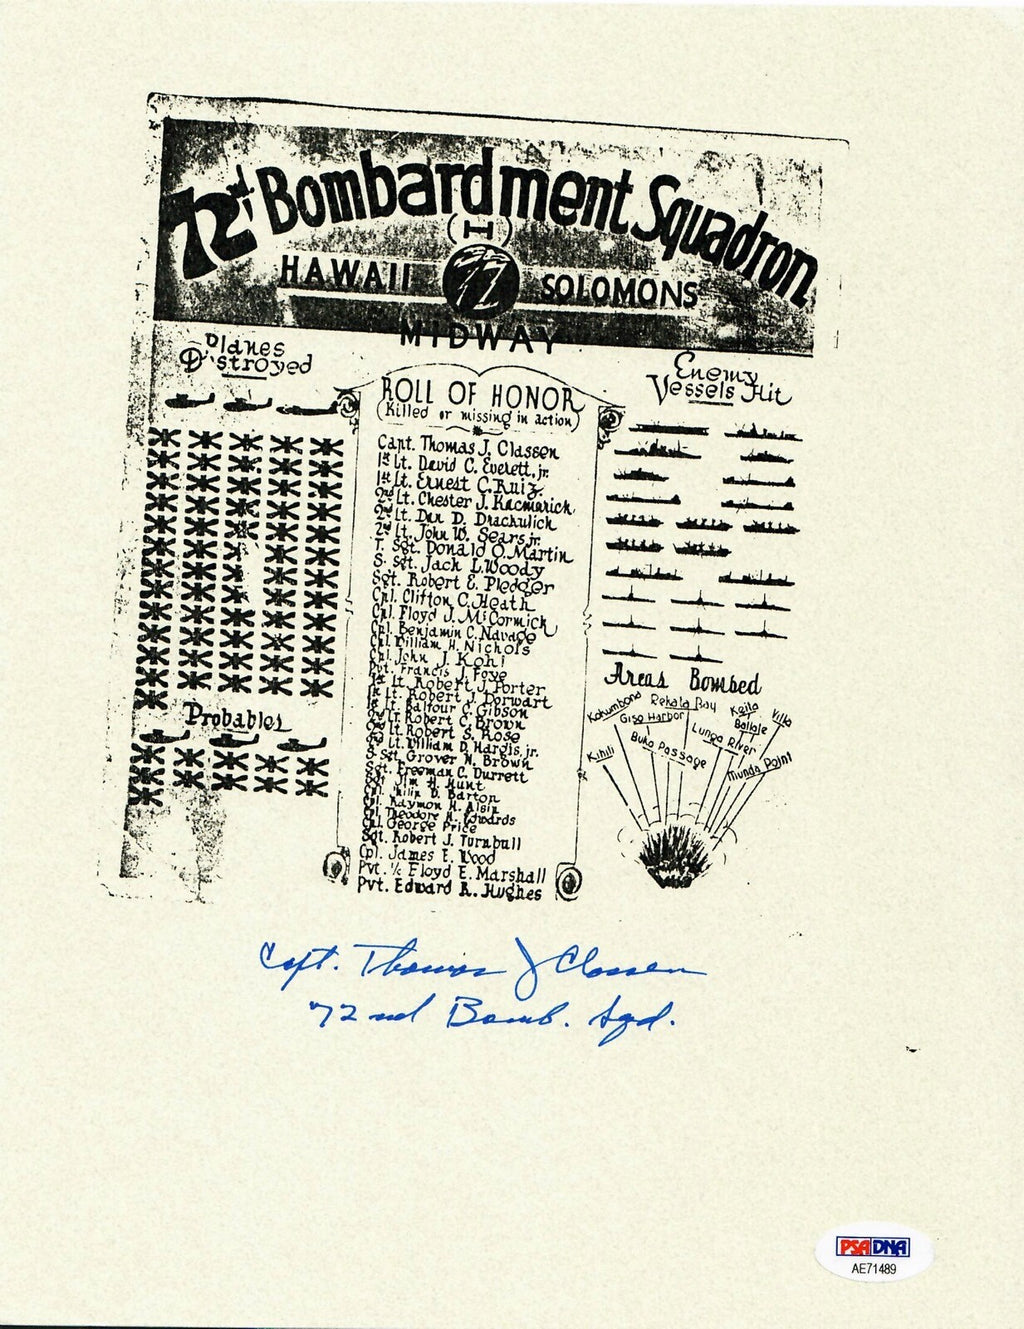 72nd Bombardment Squadron
(H)
HAWAII SOLOMONS
MIDWAY
Planes Destroyed
ROLL OF HONOR
(Killed or missing in action)
Capt. Thomas J. Classen
1st Lt. David C. Everett, jr.
1st Lt. Ernest C. Ruiz
2nd Lt. Chester J. Kacmarick
2nd Lt. Dan D. Drachulich
2nd Lt. John W. Sears jr.
T. Sgt. Donald O. Martin
S. Sgt. Jack L. Woody
Sgt. Robert E. Pledger
Cpl. Clifton C. Heath
Cpl. Floyd J. McCormick
Cpl. Benjamin C. Navage
Cpl. William H. Nichols
Cpl. John J. Kohi
Pvt. Francis J. Foye
1st Lt. Robert J. Porter
1st Lt. Robert J. Dorwart
1st Lt. Balfour C. Gibson
2nd Lt. Robert C. Brown
2nd Lt. Robert S. Rose
2nd Lt. William D. Hargis, jr.
S. Sgt. Grover N. Brown
Sgt. Freeman C. Durrett
Sgt. Jim H. Hunt
Cpl. Philip D. Barton
Cpl. Raymon H.
Cpl. Theodore H. Edwards
Cpl. George Price
Sgt. Robert J. Turnbull
Cpl. James E. Wood
Pvt. 1/c Floyd E. Marshall
Pvt. Edward R. Hughes
Probables
Enemy Vessels Hit
Areas Bombed
Kokumbona
Rekata Bay
Villa
Giso Harbor
Ballale
Lunga River
Buka Passage
Kihili
Munda Point
Capt. Thomas J Classen
72nd Bomb. Sqd.
PSA DNA
AE71489